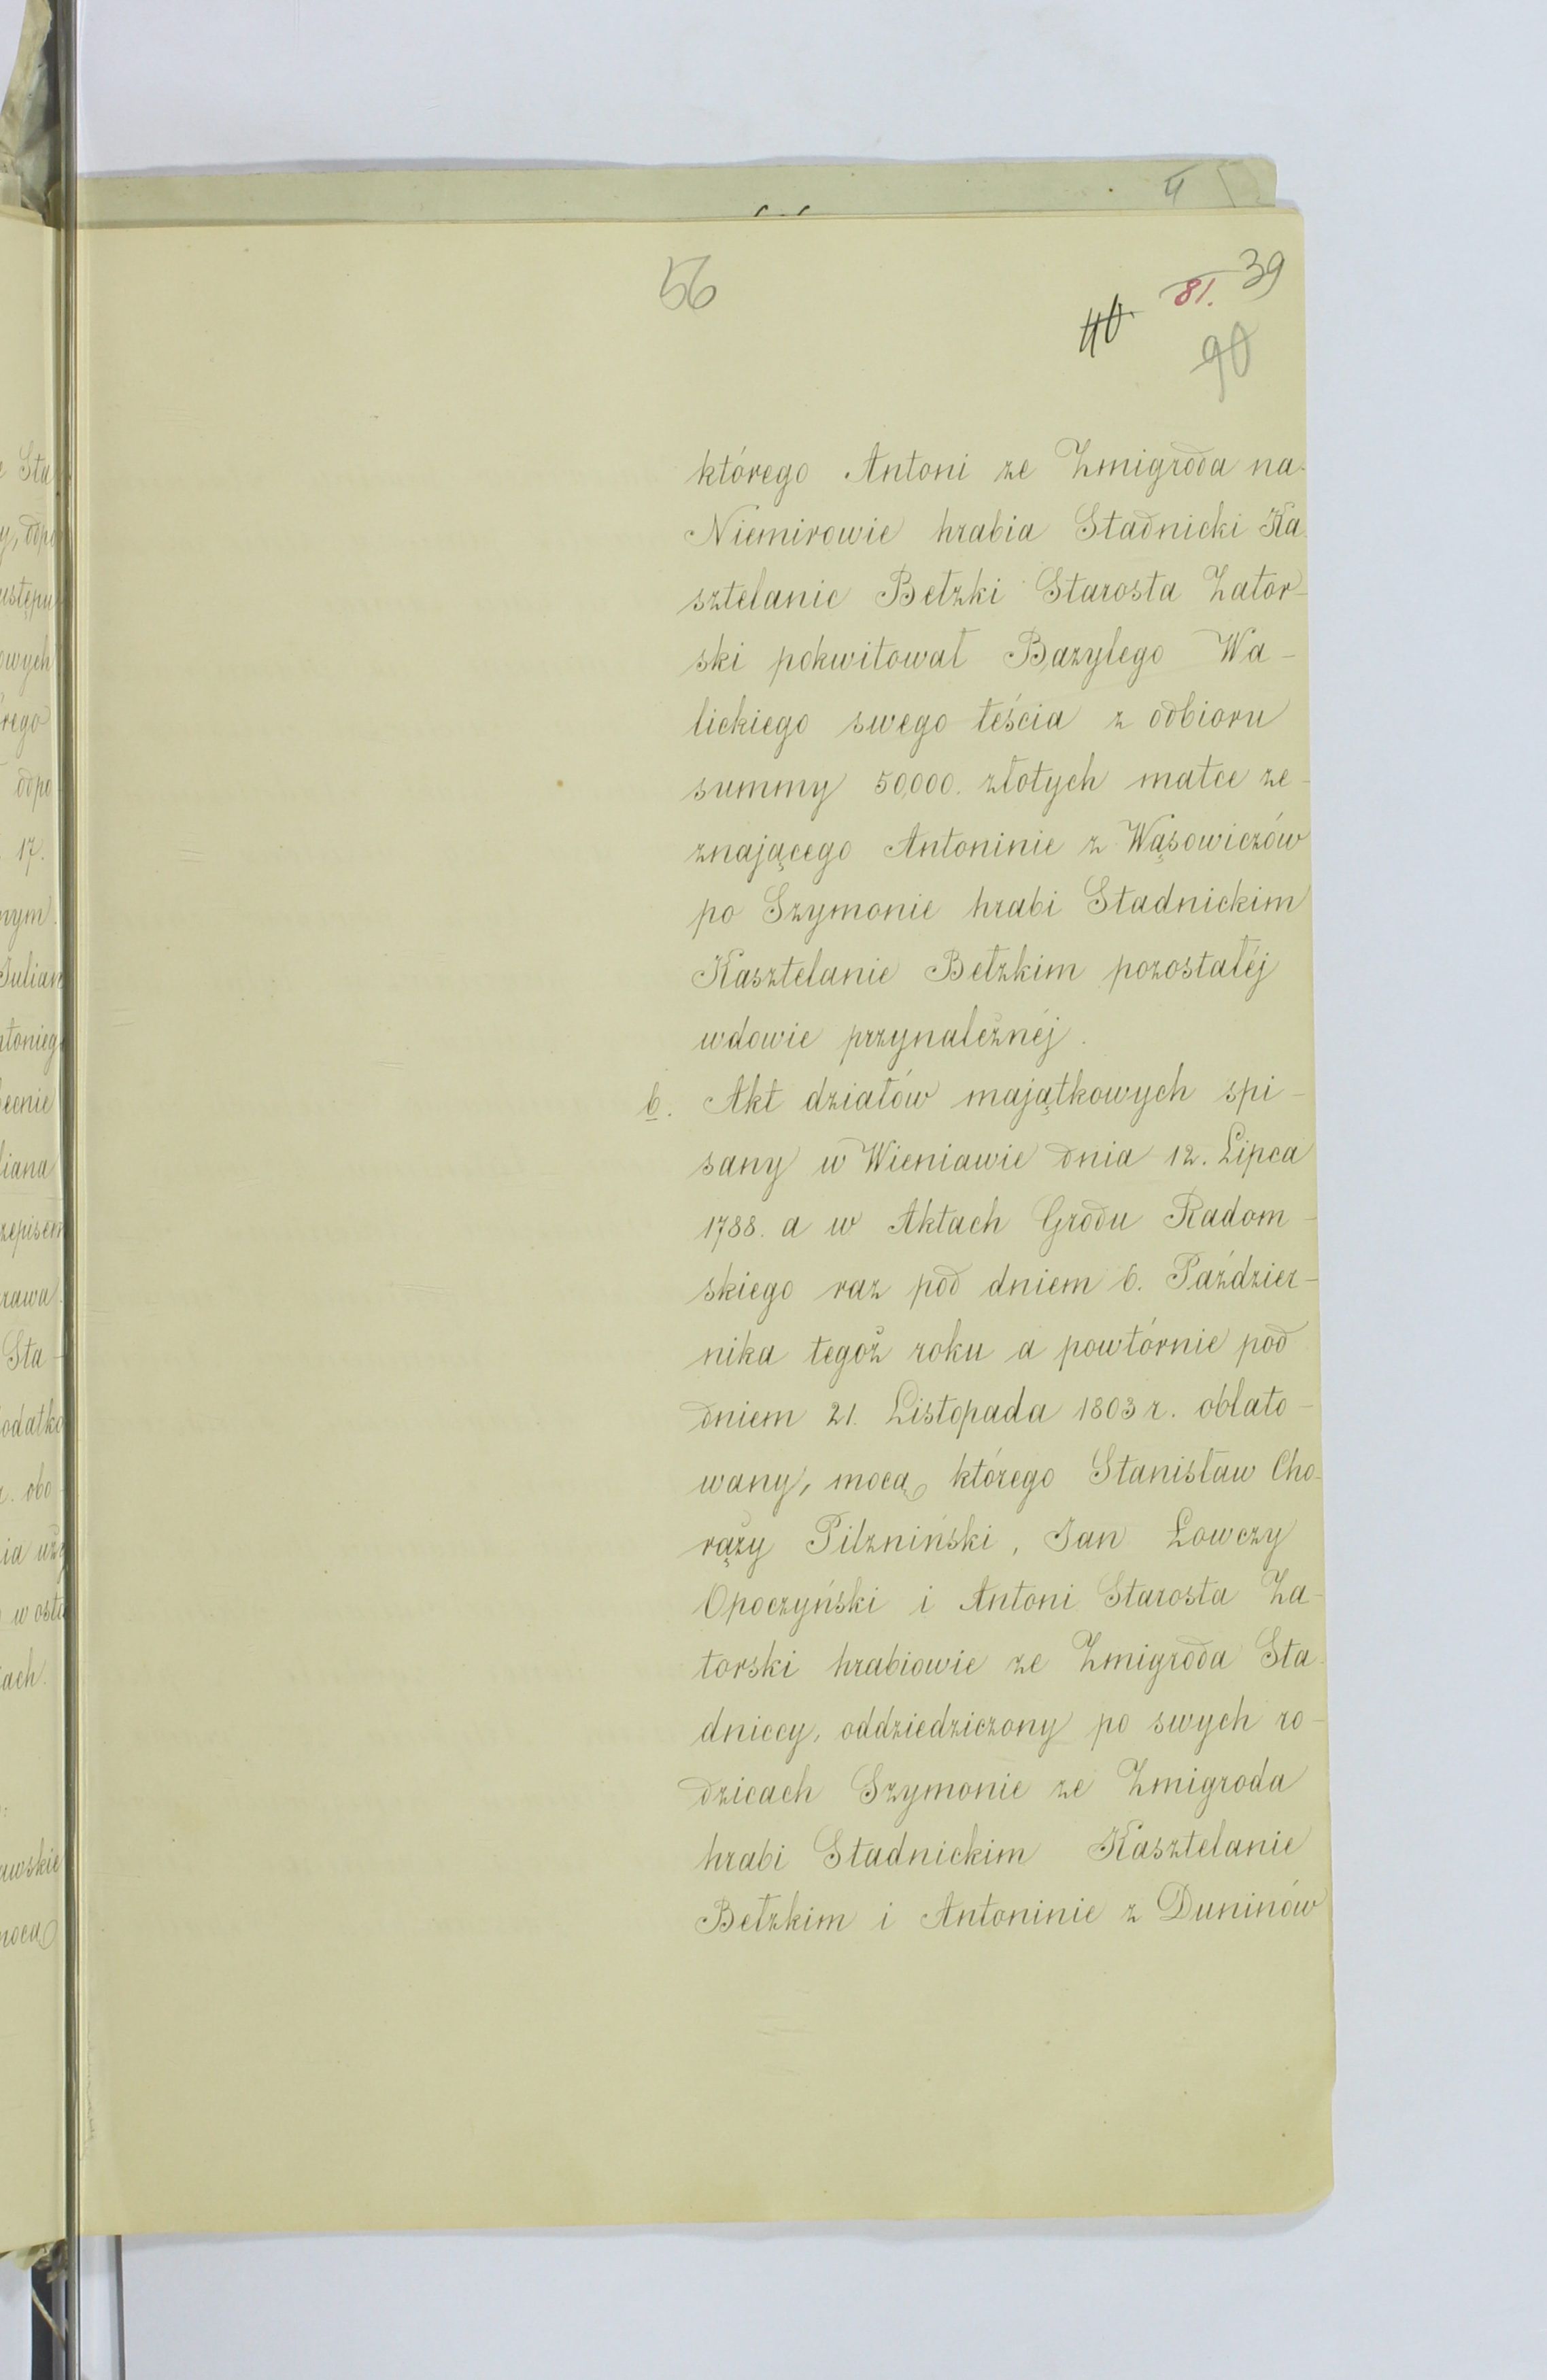 56
39
81.
40
90
którego Antoni ze Zmigroda na
Niemirowie hrabia Stadnicki Ka
sztelanic Bełzki Starosta Zator-
ski pokwitował Bazylego Wa-
lickiego swego teścia z odbioru
summy 50,000. złotych matce ze-
znającego Antoninie z Wąsowiczów
po Szymonie hrabi Stadnickim
Kasztelanie Bełzkim pozostałéj
wdowie przynależnéj.
6. Akt działów majątkowych spi-
sany w Wieniawie dnia 12. Lipca
1788. a w Aktach Grodu Radom-
skiego raz pod dniem 6. Paździer-
nika tegoż roku a powtórnie pod
dniem 21. Listopada 1803 r. oblato-
wany, mocą którego Stanisław Cho-
rąży Pilzniński, Jan Łowczy
Opoczyński i Antoni Starosta Za-
torski hrabiowie ze Zmigroda Sta-
dniccy, oddziedziczony po swych ro-
dzicach Szymonie ze Zmigroda
hrabi Stadnickim Kasztelanie
Bełzkim i Antoninie z Duninów